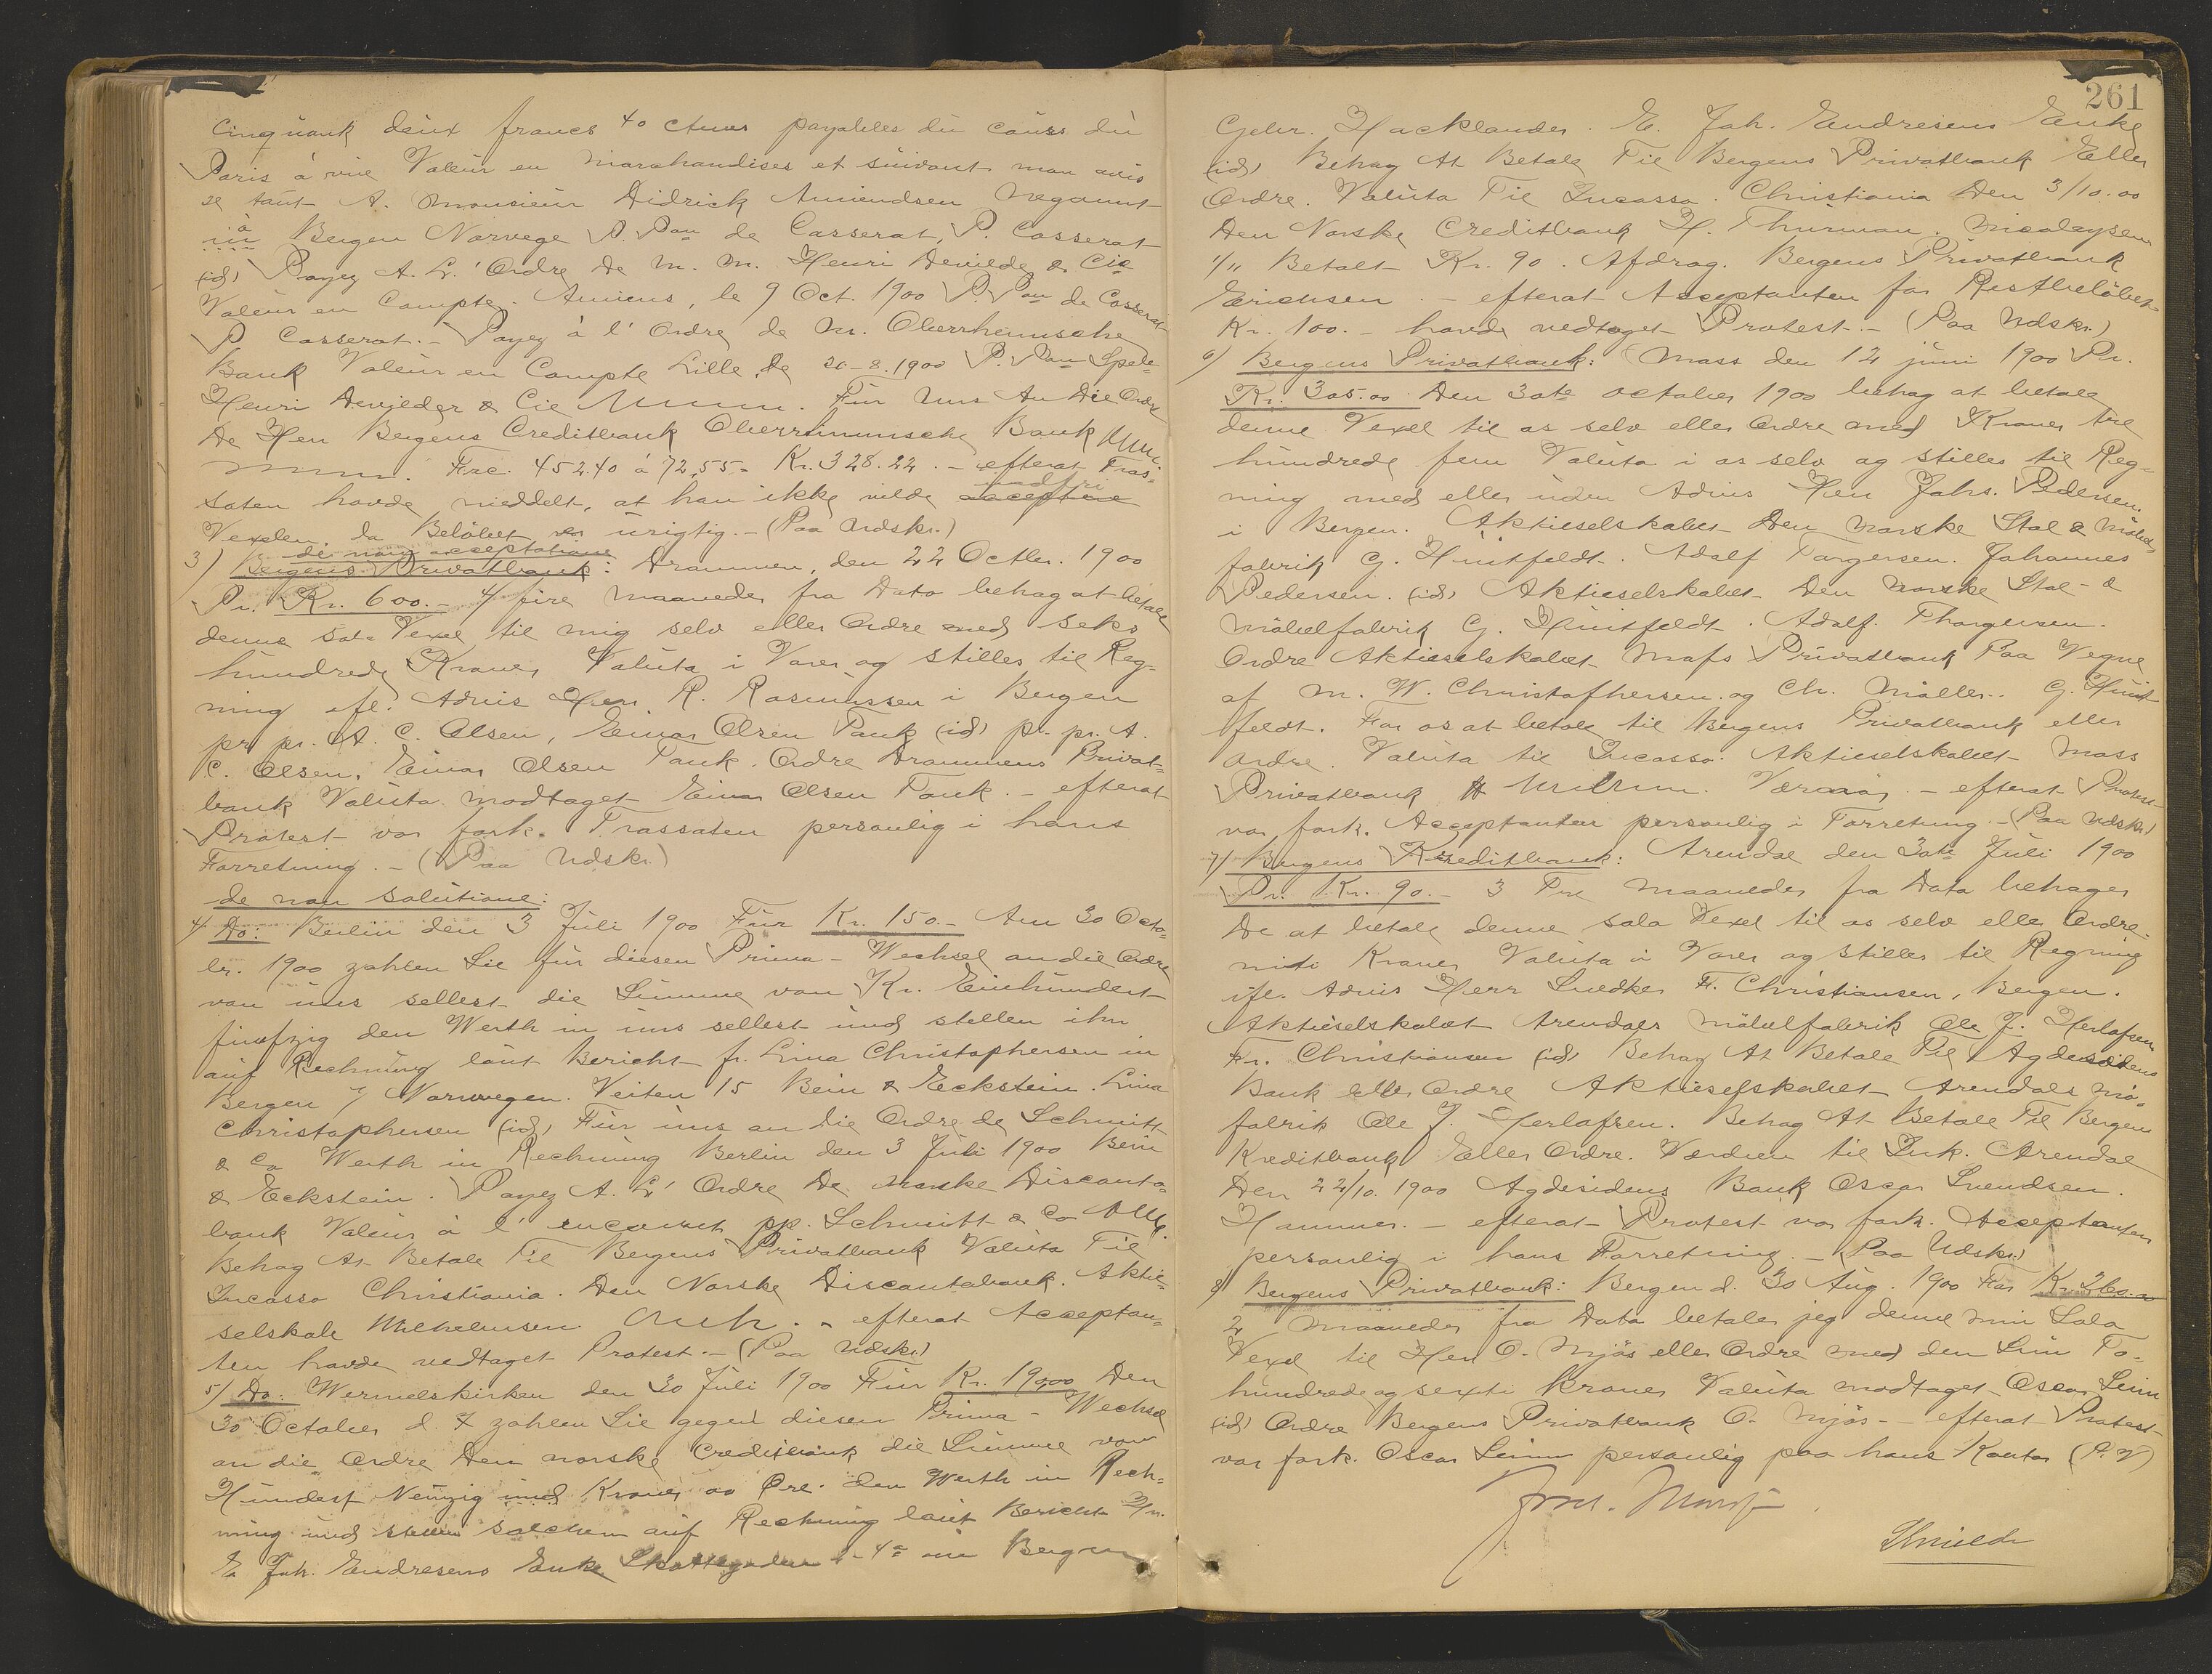 Cinquank deux francs 40 ctmes payables du cours du
Paris à vue Valeur en marchandises et suivant mon avis
A. Monsieur Didrick Amundsen Negount
à Bergen Norvege P. Pon de Casserat, P. Casserat
(id) Payez A. L.' Ordre De M. M. Henri Devilder & Cie
Valeur en Compte. Amiens, le 9 Oct. 1900 P. Pon de Casserat
P Casserat. - Payez à l' Ordre de M. Oberrheinische
Bank Valeur en Compte Lille, de 20-8.1900 P. Pon Spele-
Henri Devilder & Cie. Für uns An Die Ordre
De Hen Bergens Creditbank Oberrheinische Bank
Frc. 452.40 á 72,55 = Kr. 328.22. - efterat Tras-
saten havde meddelt, at han ikke vilde acceptere indfri
Vexelen, da Beløbet var urigtig. - (Paa Udskr.)
de non acceptatione
3) Bergens Privatbank: Drammen, den 22 Octbr. 1900
Pr. Kr. 600. - 4/ fire Maaneder fra Dato behag at betale
denne sola Vexel til mig selv eller Ordre med seks
hundrede Kroner Valuta i Varer og stilles til Reg-
ning ifl. Advis Herr R. Rasmussen i Bergen
pr pr. A. C. Olsen, Einar Olsen Pauk (id) pr. pr. A.
C. Olsen, Einar Olsen Pauk. Ordre Drammens Privat-
bank Valuta modtaget Einar Olsen Pauk. - efterat
Protest var fork. Trassaten personlig i hans
Forretning. - (Paa Udskr.)
de non solutione:
4/ Do: Berlin den 3 Juli 1900 Für Kr. 150. - Am 30 Octo-
br. 1900 zahlen Sie für diesen Prima - Wechsel an die Ordre
von uns selbst die Summe von Kr. Einhundert
fünfzig den Werth in uns selbst und stellen ihn
auf Rechnung laut Bericht fr. Lina Christophersen in
Bergen / Norwegen. Veiten 15 Bein & Eckstein. Lina
Christophersen (id) Für uns an die Ordre de Schmitt
& Co Werth in Rechnung Berlin den 3 Juli 1900 Bein
& Eckstein. Payez A. L' Ordre De norske Disconto-
bank Valeur à l' encaissent pp. Schmitt & Co
Behag At Betale Til Bergens Privatbank Valuta Til
Incasso Christiania. Den Norske Discontobank. Aktie-
selskab Wilhelmsen. - efterat Acceptan-
ten havde nedtaget Protest. - (Paa Udskr.)
5) Do: Wermelskirken den 30 Juli 1900 Für Kr. 190,00 Den
30 October d. J. zahlen Sie gegen diesen Prima - Wechsel
an die Ordre Den norske Creditbank die Summe von
Hundert Neunzig und Kroner 00 Øre. den Werth in Rech-
nung und stellen solchen auf Rechnung laut Bericht Hr.
E Joh. Endresens Enke Skottegaden in Bergen
261
Gebr. Hacklander. E. Joh. Endresens Enke
(id) Behag At Betale Til Bergens Privatbank Eller
Ordre. Valuta Til Incasso. Christiania Den 3/10.00
Den Norske Creditbank H. Thurman. Nicolaysen
1/11 Betalt Kr. 90. Afdrag. Bergens Privatbank
Erichsen. - efterat Acceptanten for Restbeløbet
Kr. 100. - havde nedtaget Protest. - (Paa Udskr.)
6) Bergens Privatbank: Moss den 12 juni 1900 Pr.
Kr. 305.00 Den 30te october 1900 behag at betale
denne Vexel til os selv eller Ordre med Kroner tre
hundrede fem Valuta i os selv og stilles til Reg-
ning med eller uden Advis Herr Johs. Pedersen,
i Bergen. Aktieselskabet Den norske Stol & Møbel-
fabrik G. Huitfeldt. Adolf Torgersen. Johannes
Pedersen. (id) Aktieselskabet Den norske Stol - &
Møbelfabrik G. Huitfeldt. Adolf. Thorgersen.
Ordre Aktieselskabet Moss Privatbank Paa Vegne
af M. W. Christophersen og Chr. Møller. G. Huit
feldt. For os at betale til Bergens Privatbank eller
ordre. Valuta til Incasso. Aktieselskabet Moss
Privatbank. - efterat Protest
var fork. Acceptanten personlig i Forretning. - (Paa Udskr.)
7) Bergens Kreditbank: Arendal den 30te Juli 1900
Pr. Kr. 90. - 3 Tre Maaneder fra Dato behager
De at betale denne sola Vexel til os selv eller Ordre.
nitti Kroner Valuta i Varer og stilles til Regning
ifl. Advis Herr Snedker F. Christiansen, Bergen.
Aktieselskabet Arendals Møbelfabrik Ole J. Herlofsen
Fr. Christiansen (id) Behag At Betale Til Agdesidens
Bank eller Ordre Aktieselskabet Arendals Mø-
fabrik Ole J. Herlofsen. Behag At Betale Til Bergens
Kreditbank Eller Ordre. Værdien til Ink. Arendal
Den 22/10. 1900 Agdesidens Bank Oscar Svendsen.
Hammer. - efterat Protest var fork. Acceptanten
personlig i hans Forretning. - (Paa Udskr.)
8) Bergens Privatbank: Bergen d. 30 Aug. 1900 For Kr. 260.00
2 Maaneder fra Dato betaler jeg denne min Sola
Vexel til Herr O. Mjøs eller Ordre med den Sum To-
hundrede og sexti Kroner Valuta modtaget Oscar Leim
(id) Ordre Bergens Privatbank O. Mjøs - - efterat Protest
var fork. Oscar Leim personlig paa hans Kontor (P. U)